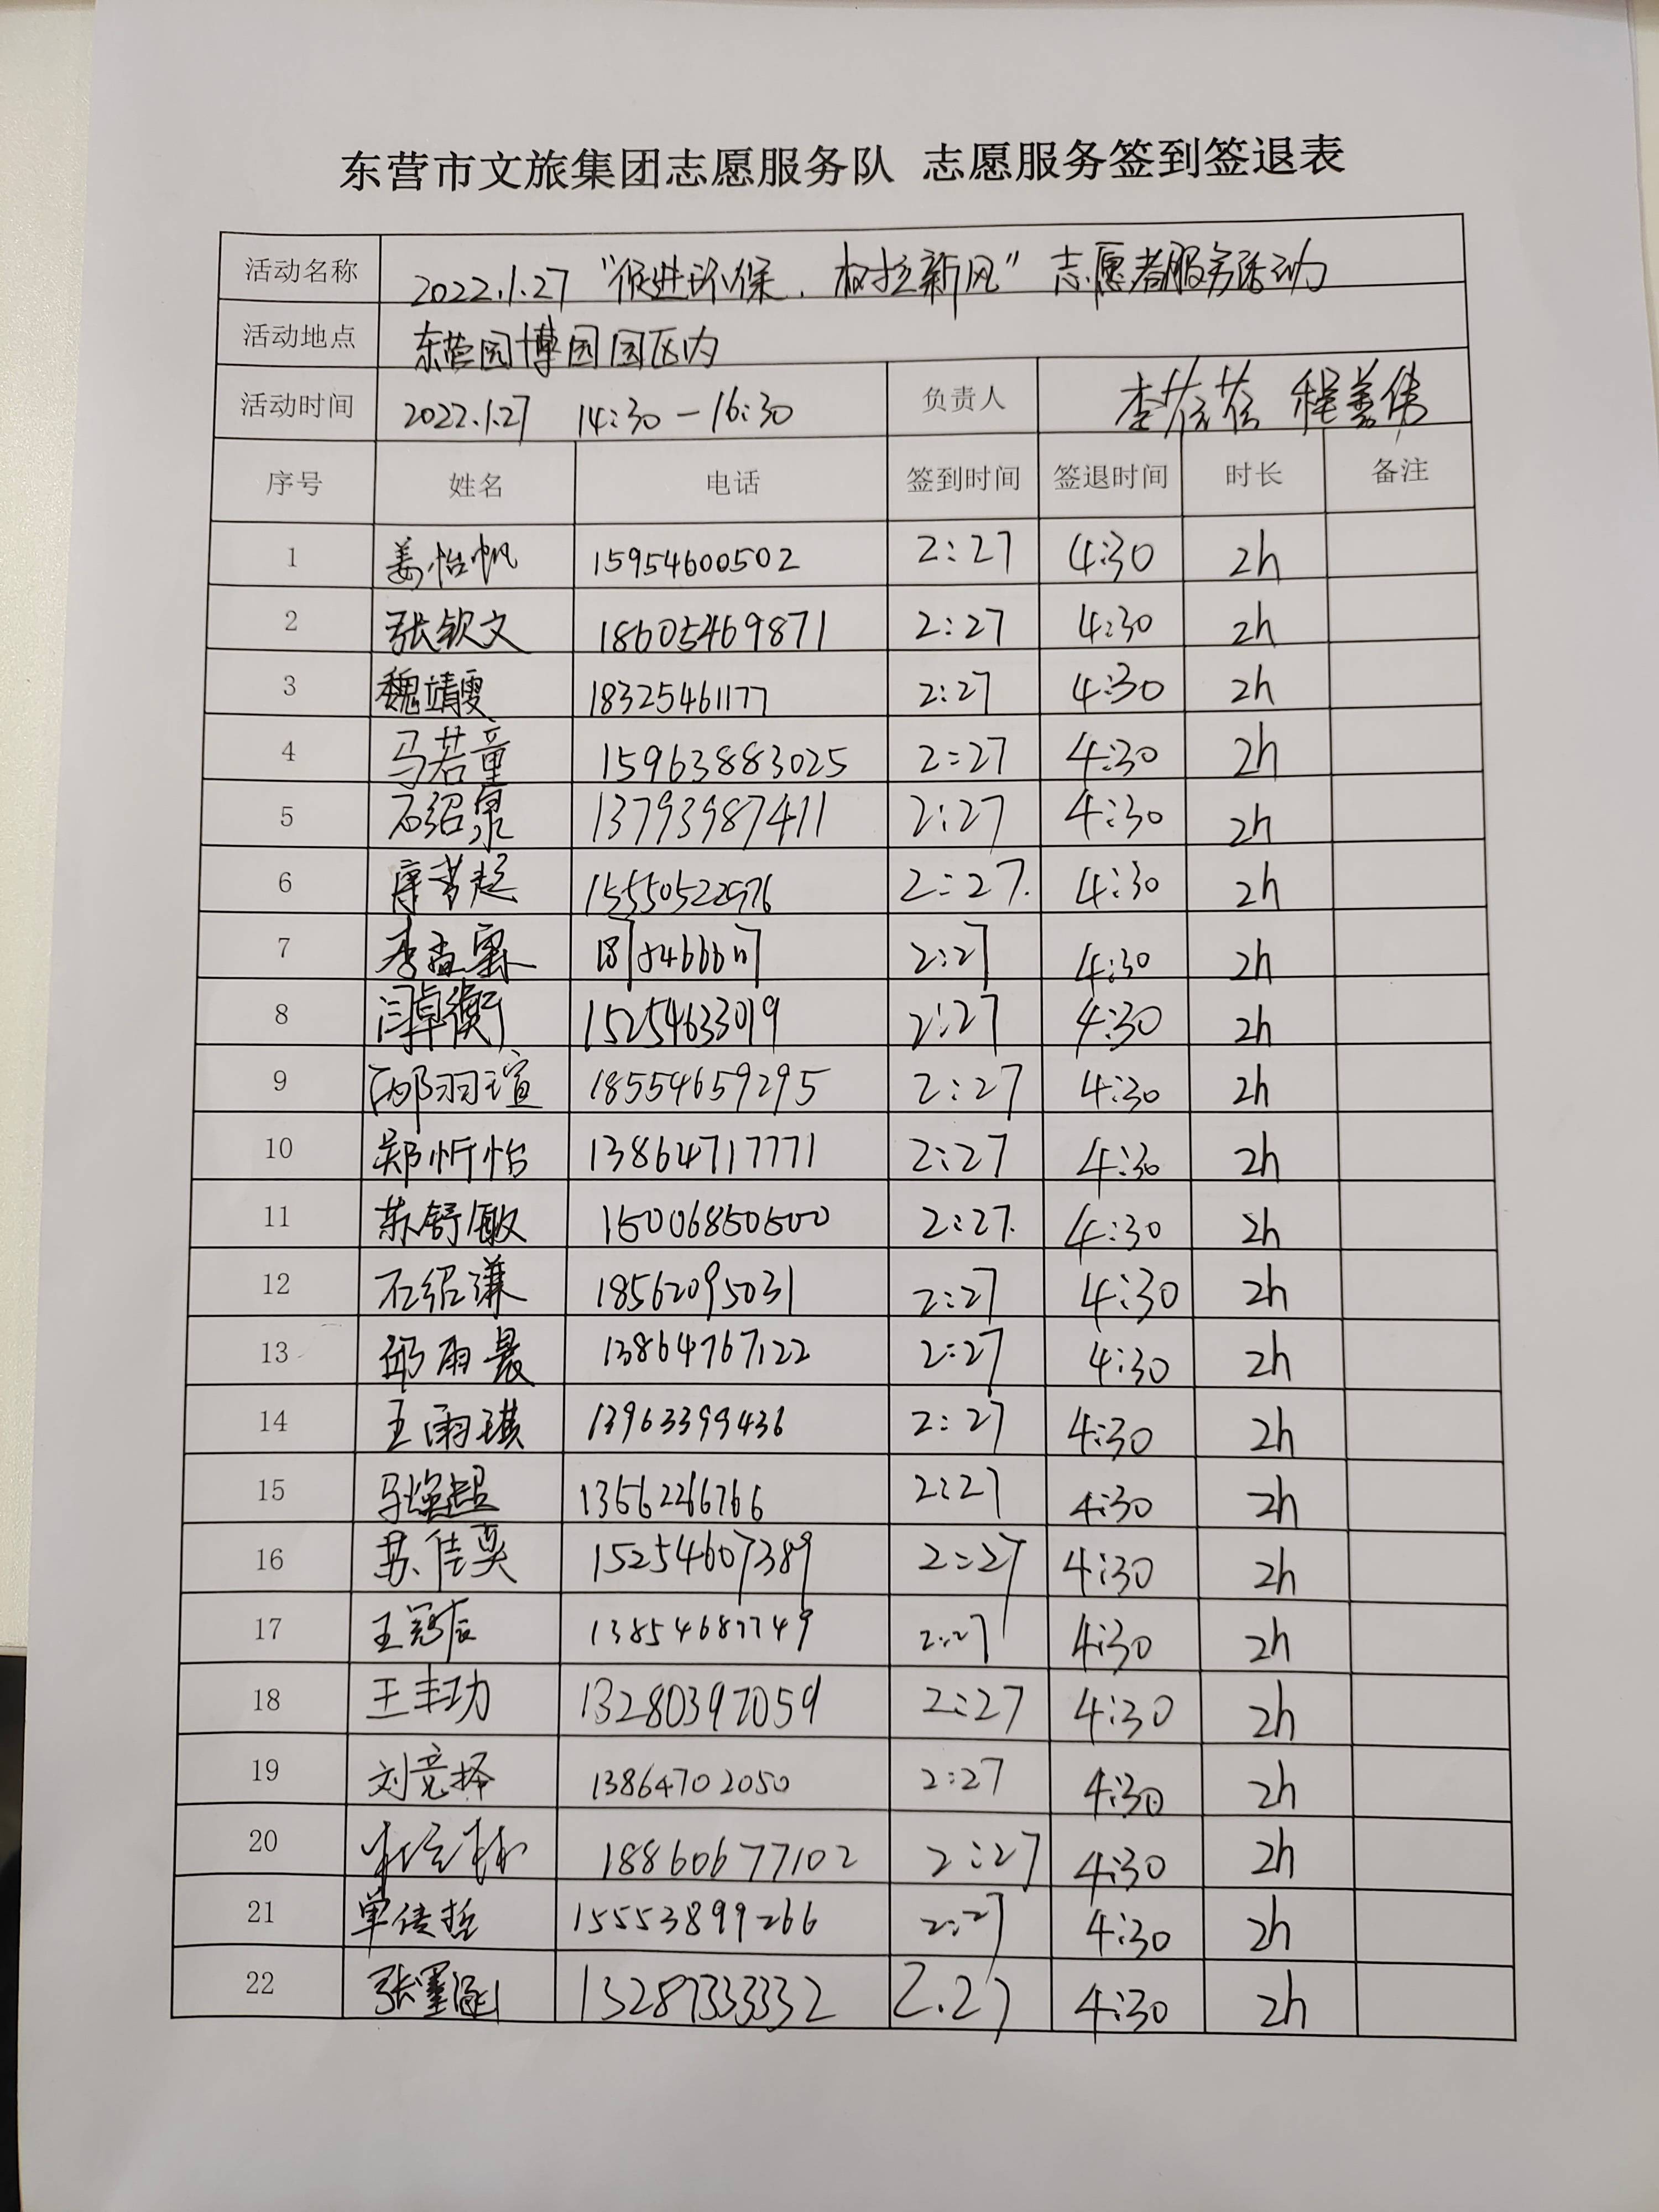 东营市文旅集团志愿服务队 志愿服务签到签退表
活动名称 2022.1.27 "促进环保、树立新风" 志愿者服务活动
活动地点 东营园博园园区内
活动时间 2022.1.27 14:30-16:30 负责人 程善伟
序号 姓名 电话 签到时间 签退时间 时长 备注
1 姜怡帆 15954600502 2:27 4:30 2h
2 张钦文 18605469871 2:27 4:30 2h
3 魏靖雯 18325461177 2:27 4:30 2h
4 马若童 15963883025 2:27 4:30 2h
5 石绍泉 13793987411 2:27 4:30 2h
6 15550522976 2:27. 4:30 2h
7 2:27 4:30 2h
8 闫卓衡 15254633019 2:27 4:30 2h
9 邴羽瑄 18554659295 2:27 4:30 2h
10 郑忻怡 13864717771 2:27 4:30 2h
11 苏舒敏 15006850500 2:27. 4:30 2h
12 石绍谦 18562095031 2:27 4:30 2h
13 邱雨晨 13864767122 2:27 4:30 2h
14 王雨琪 13963399436 2:27 4:30 2h
15 2:27 4:30 2h
16 苏佳奕 15254607389 2:27 4:30 2h
17 王冠辰 13854687749 2:27 4:30 2h
18 王丰功 13280397059 2:27 4:30 2h
19 刘竞择 13864702050 2:27 4:30 2h
20 18860677102 2:27 4:30 2h
21 单传哲 15553899266 2:27 4:30 2h
22 13287333332 2.27 4:30 2h